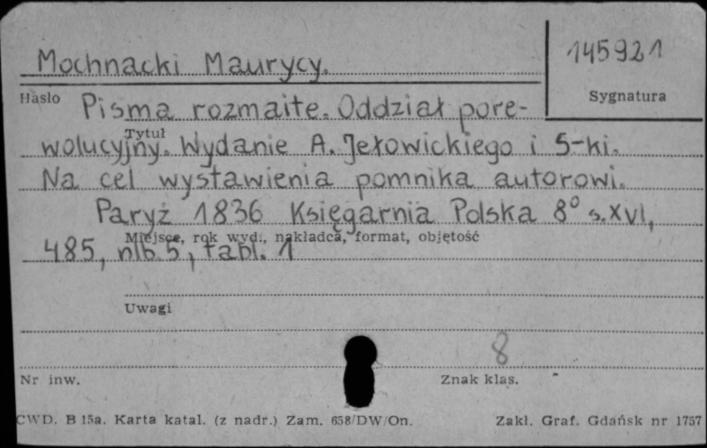 Mochnacki Maurycy.
145921
Hasło
Sygnatura
Pisma rozmaite. Oddział pore-
Tytuł
wolucyjny. Wydanie A. Jełowickiego i S-ki.
Na cel wystawienia pomnika autorowi.
Paryż 1836 Księgarnia Polska 8° s. XVI,
Miejsce, rok wyd., nakładca, format, objętość
485, nlb. 5, tabl. 1
Uwagi
8
Nr inw.
Znak klas.
CWD. B 15a. Karta katal. (z nadr.) Zam. 658/DW/On.
Zakł. Graf. Gdańsk nr 1757